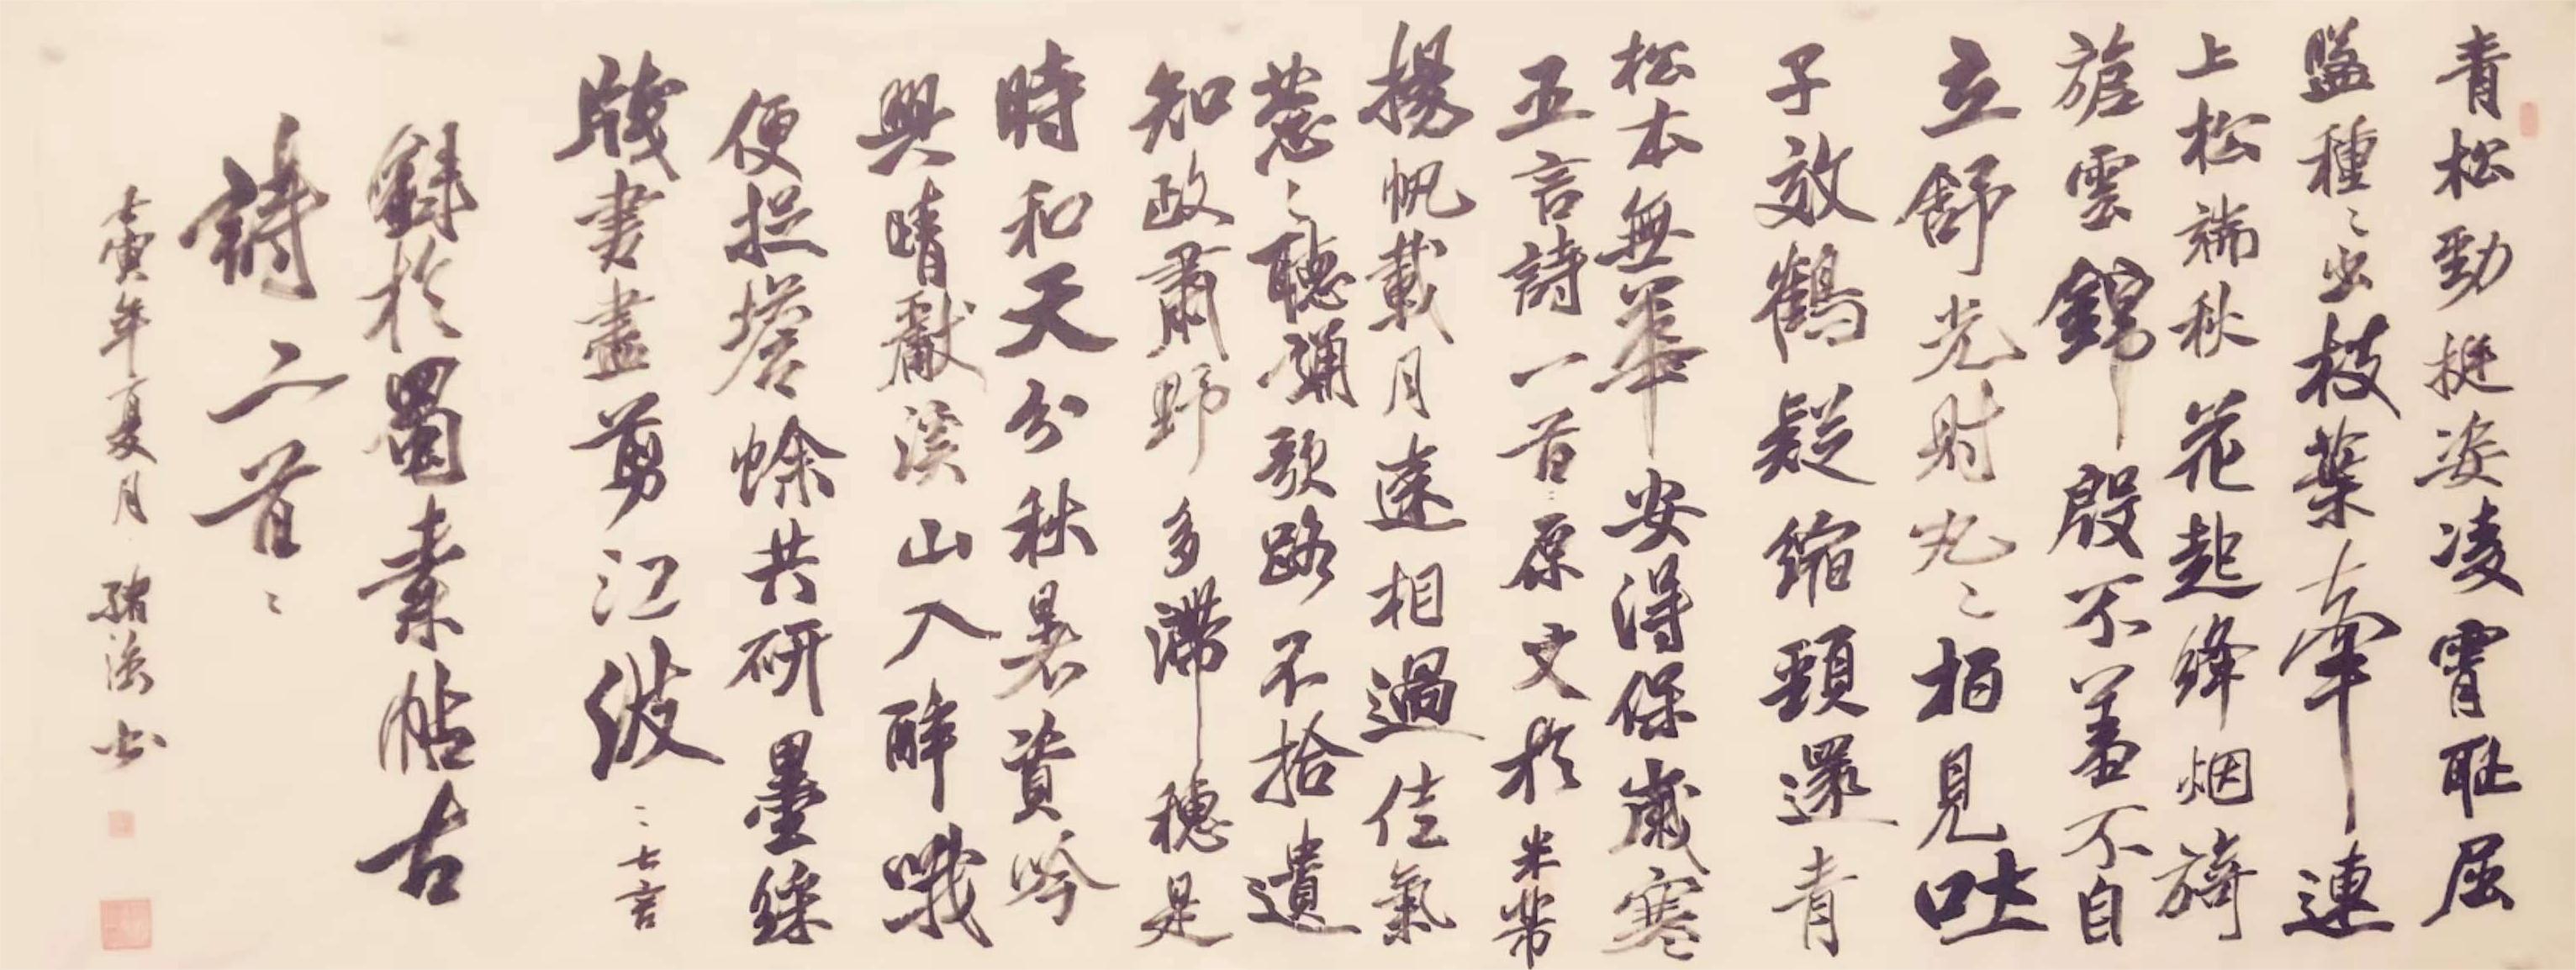 青松勁挺姿凌霄恥屈
盤種〻出枝葉牽連
上松端秋花起絳烟旖
旎雲錦殷不羞不自
立舒光射丸〻柏見吐
子效鶴疑縮頸還青
松本無華安得保歲寒
五言詩一首原文於米芾
揚帆載月遠相過佳氣
蔥〻聽誦歌路不拾遺
知政肅野多滯穗是
時和天分秋暑資吟
興晴獻溪山入醉哦
便捉蟾蜍共研墨綵
牋書盡剪江波 七言
錄於蜀素帖古
詩二首
壬寅年夏月 法書